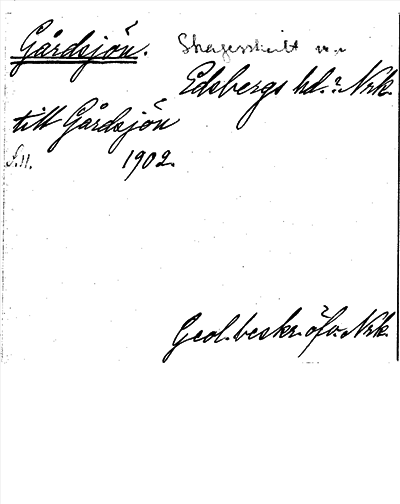 Gårdsjön. Skagersholt m.m
Edsbergs hd.? Nrk.
till Gårdsjön
S. 11. 1902.
Geol. beskr. öfv. Nrk.